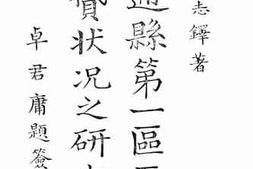 志鐸著
縣第一區
狀况之研
卓君庸題簽